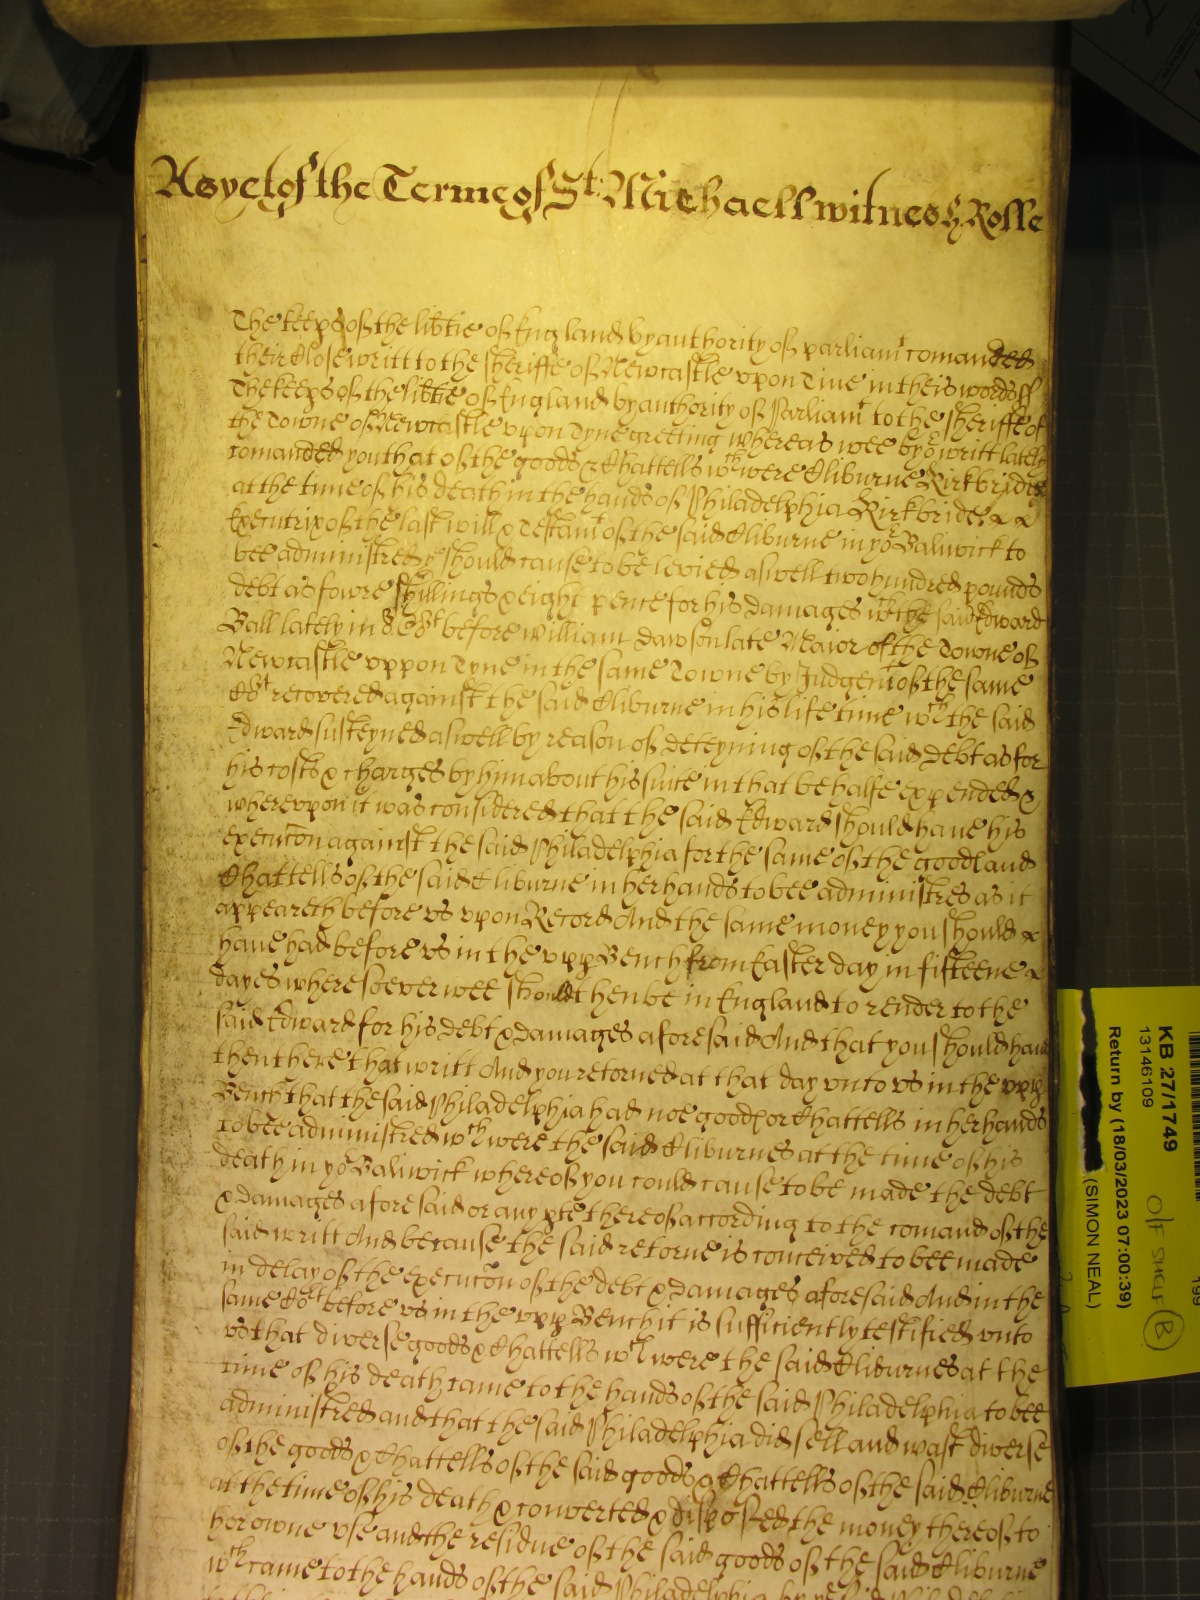 As yet of the Terme of St. Michaell witnes H Rolle
The keeps of the lib̃tie of England by authority of parliamt comanded
their Close writt to the sheriffe of Newcastle vpon Tine in theis words ss
The keeps of the lib̃tie of England by authority of Parliamt to the sheriffe of
the Towne of Newcastle vpon Tyne greeting whereas wee by or writt lately
comanded you that of the goods & Chattells wch were Cliburne Kirkbrides
at the time of his death in the hands of Philadelphia Kirkbride
Executrix of the last will & Testamt of the said Cliburne in yor Baliwick to
bee administred yo should cause to be levied aswell two hundred pounds
debt as fowre shillings & eight pence for his damages wch the said Edward
Ball lately in Cort before William Dawson late Maior of the Towne of
Newcastle vppon Tyne in the same Towne by Judgemt of the same
Cort recovered against the said Cliburne in his life time wch the said
Edward susteyned aswell by reason of deteyning of the said debt as for
his costs & charges by him about his suite in that behalfe expended &
wherevpon it was considered that the said Edward should have his
execucõn against the said Philadelphia for the same of the good and
Chattells of the said Cliburne in her hands to bee administred as it
appeareth before vs vpon Record And the same money you should
have had before vs in the vpp Bench from Easter day in fifteene
dayes wheresoever wee should then be in England to render to the
said Edward for his debt & damages aforesaid And that you should have
then there that writt And you retorned at that day vnto vs in the vpp
Bench that the said Philadelphia had noe goods or Chattells in her hands
to bee administred wch were the said Cliburnes at the time of his
death in yor Baliwick whereof you could cause to be made the debt
& damages aforesaid or any pte thereof according to the comand of the
said writt And because the said retorne is conceived to bee made
in delay of the execucõn of the debt & damages aforesaid And in the
same Cort before vs in the vpp Bench it is sufficiently testified vnto
vs that diverse goods & Chattells wch were the said Cliburnes at the
time of his death came to the hands of the said Philadelphia to bee
administred and that the said Philadelphia did sell and wast diverse
of the goods & Chattells of the said goods & Chattells of the said Cliburne
at the time of his death & converted & disposed the money thereof to
her owne vse and the residue of the said goods of the said Cliburne
wch came to the hands of the said Philadelphia
KB 27/1749
13146109
Return by (18/03/2023 07:00:39)
(SIMON NEAL)
O/F SHELF B
199